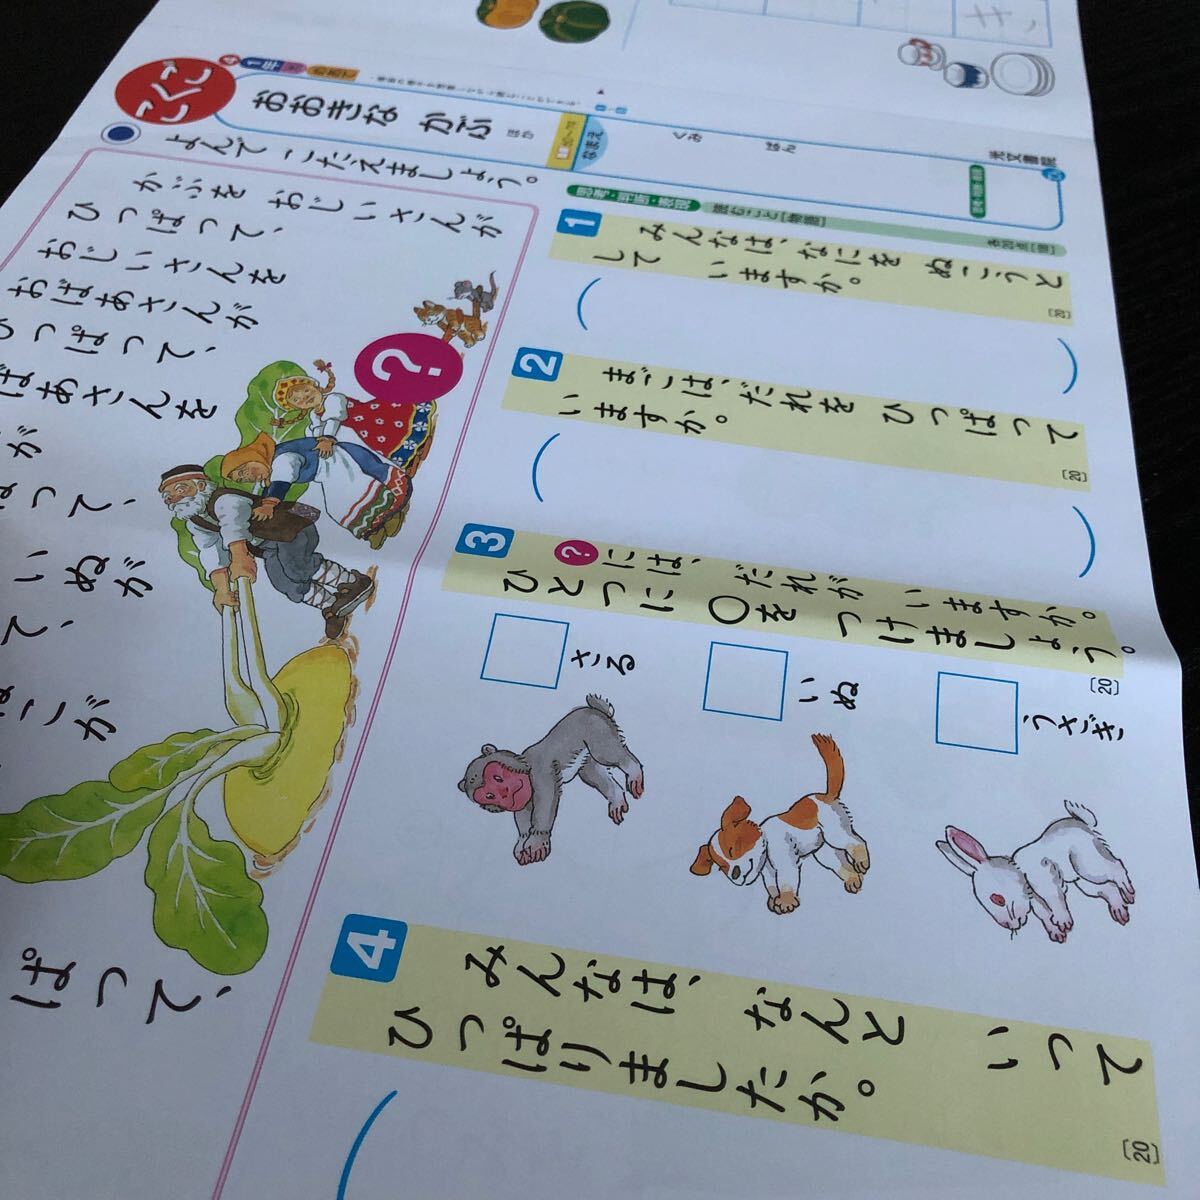 こくご
4
1年
おおきな かぶ
ほか
なまえ
くみ
ばん
光文書院
よんで こたえましょう。
かぶを おじいさんが
ひっぱって、
おじいさんを
おばあさんが
ひっぱって、
ばあさんを
が
って、
いぬが
て、
こが
ぱって、
?
思考・判断・表現
読むこと[物語]
各20点[題]
1
みんなは、なにを ぬこうと
して いますか。
[20]
2
まごは、だれを ひっぱって
いますか。
[20]
3
?には、だれが いますか。
ひとつに ○を つけましょう。
[20]
さる
いぬ
うさぎ
4
みんなは、なんと いって
ひっぱりましたか。
[20]